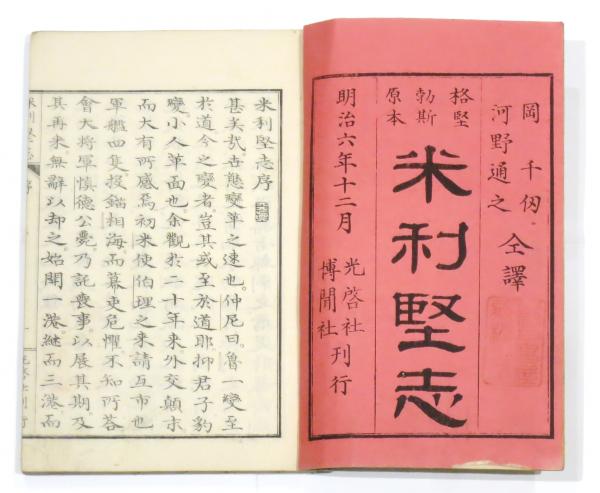 岡 千仭
河野通之
仝譯
格堅
勃斯
原本
米利堅志
明治六年十二月
光啓社
博聞社
刊行
米利堅志序
甚矣哉世態變革之速也仲尼曰魯一變至
於道今之變者豈其或至於道耶抑君子豹
變小人革面也余觀於二十年來外交顛末
而大有所感焉初米使伯理之來請互市也
軍艦四隻投錨相海而幕吏危懼不知所答
會大將軍慎德公薨乃託喪事以展其期及
其再來無辭以却之始開一港継而三港而
米利堅志 序